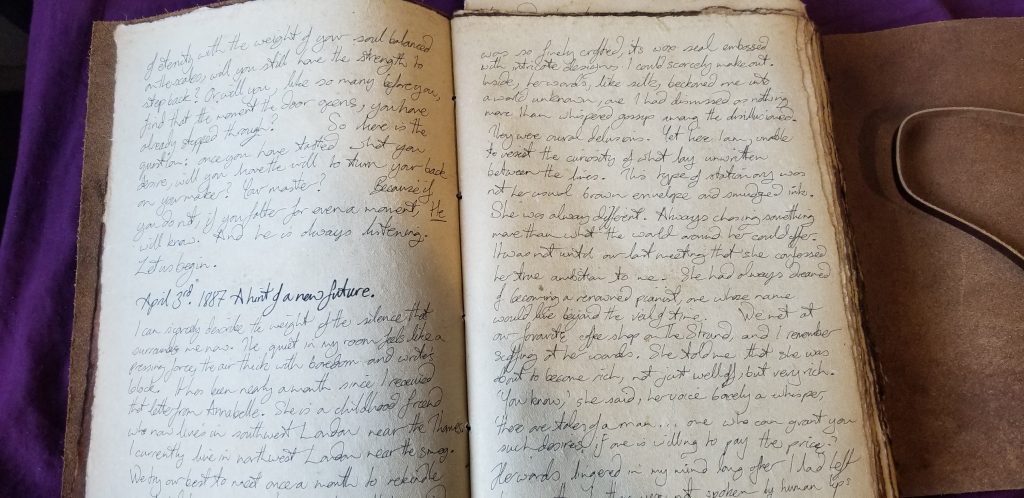 of eternity with the weight of your soul balanced
on the scales, will you still have the strength to
step back? Or will you, like so many before you,
find that the moment the door opens, you have
already stepped through? So here is the
question: once you have tasted what you
desire, will you have the will to turn your back
on your maker? Your master? Because if
you do not, if you falter for even a moment, He
will know. And he is always listening.
Let us begin.
April 3rd. 1887 A hint of a new future.
I can scarcely describe the weight of the silence that
surrounds me now. The quiet in my room feels like a
pressing force, the air thick with boredom and writer's
block. It has been nearly a month since I received
that letter from Annabelle. She is a childhood friend
who now lives in southwest London near the Thames.
I currently live in northwest London near the smog.
We try our best to meet once a month to rekindle
was so finely crafted, its wax seal embossed
with intricate designs I could scarcely make out.
Inside, her words, like silk, beckoned me into
a world unknown, one I had dismissed as nothing
more than whispered gossip among the disillusioned.
They were aural delusions. Yet here I am, unable
to resist the curiosity of what lay unwritten
between the lines. This type of stationary was
not her usual brown envelope and smudged inks.
She was always different. Always chasing something
more than what the world around her could offer.
It was not until our last meeting that she confessed
her true ambition to me. She had always dreamed
of becoming a renowned pianist, one whose name
would live beyond the veil of time. We met at
our favourite coffee shop on the Strand, and I remember
scoffing at her words. She told me that she was
about to become rich, not just well off, but very rich.
'You know,' she said, her voice barely a whisper,
'there are tales of a man... one who can grant you
such desires, if one is willing to pay the price.'
Her words lingered in my mind long after I had left
not spoken by human lips